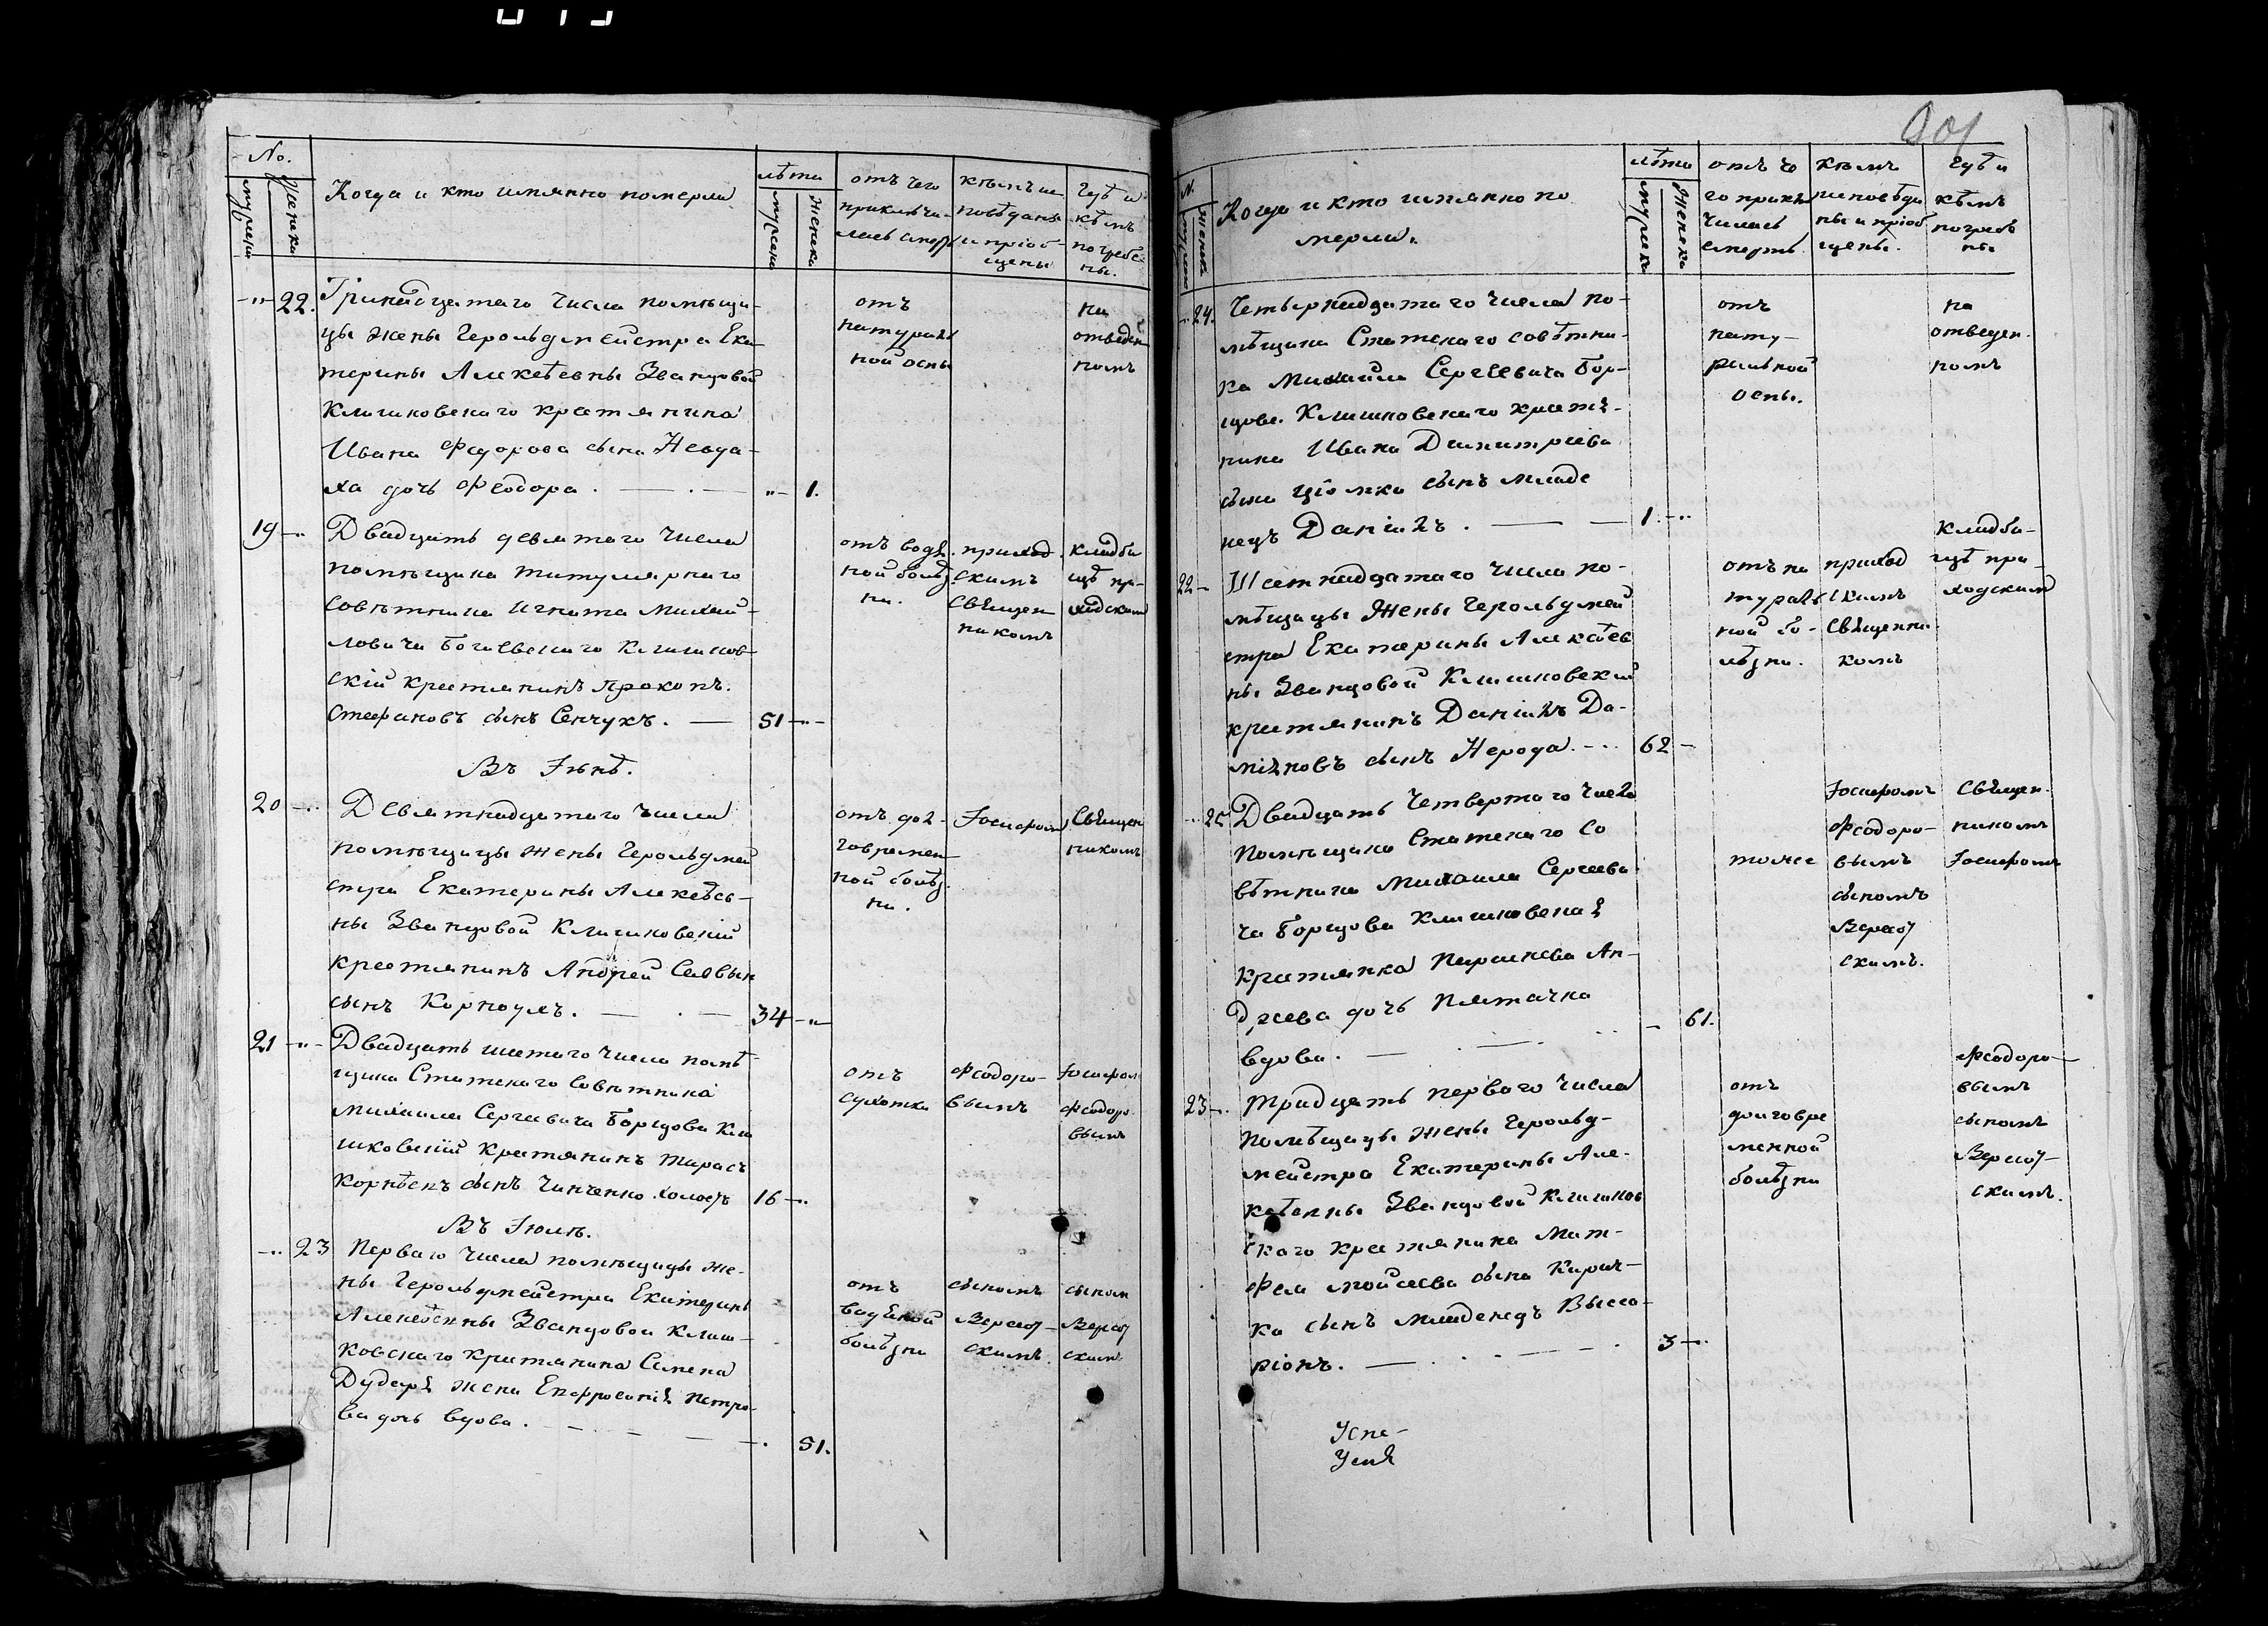 901
No.
мужеска
Женска
Когда и кто имянно померли
лѣта
мужеска
женска
отъ чего
приключи-
лась смерт
кѣмъ ис
повѣданы
и пріоб-
щены
Гдѣ и
кѣмъ
погребе-
ны.
-"- 22.
Тринадцатаго числа помѣщи-
цы жены Герольдмейстра Ека
терины Алексѣевны Званцовой
Клишковскаго крестянина
Ивана Федорова сына Невда-
ха дочь Феодора.
"- 1.
отъ
натураль
ной оспы
на
отведен
номъ
19 -"
Двадцать девятаго числа
помѣщика титулярнаго
совѣтника Игната Михай-
ловича
Клишков-
скій крестянинъ Прокопъ
Стефановъ сынъ Сенчукъ.
51 -"-
отъ водя
ной болѣз
ни.
приход
скимъ
Священ
никомъ
кладби
щѣ при-
ходском
Въ Іюнѣ.
20 -"
Девятнадцатаго числа
помѣщицы жены Герольдмей
стра Екатерины Алексѣев-
ны Званцовой Клишковскій
крестянинъ Андрей Саввин
сынъ Корноухъ.
34 -"-
отъ дол-
говремен
ной болѣз
ни.
Іосифом
Священ
никомъ
21 -"-
Двадцать шестаго числа помѣ
щика Статскаго Совѣтника
Михаила Сергѣевича Борщова Кли
шковскій Крестянинъ Тарасъ
Корнѣевъ сынъ Чинченко холостъ
16 -"
отъ
сухотки
Феодоро-
вымъ
Іосифом
Феодоро
вымъ
Въ Іюлѣ.
-" 23
Перваго числа помѣщицы же-
ны Герольдмейстра Екатерины
Алексѣевны Званцовой Клиш-
ковскаго крестянина Семена
Дударя жена Евфросинія Петро-
ва дочь вдова.
51.
отъ
водяной
болѣзни
сыномъ
Верест-
скимъ
сыном
Верест
скимъ
N.
мужеска
Женска
Когда и кто имянно по
мерли.
лѣта
мужеска
Женска
отъ че
го приклю
чилась
смерть
кѣмъ
исповѣда
ны и пріоб
щены.
Гдѣ и
кѣмъ
погребе
ны
-" 24.
Четырнадцатаго числа по-
мѣщика Статскаго совѣтни-
ка Михаила Сергѣевича Бор-
щова Клишковскаго крестя-
нина Ивана Димитріева
сына Цѣомка сынъ младе
нецъ Даніилъ.
1. -"
отъ
нату-
ральной
оспы.
на
отведен-
номъ
22 -
Шестнадцатаго числа по-
мѣщицы Жены Герольдмей
стра Екатерины Алексѣев
ны Званцовой Клишковскій
крестянинъ Даніилъ Да-
ніиловъ сынъ Нерода.
62 -
отъ на
тураль
ной бо-
лѣзни.
приход
скимъ
Священни-
комъ
Кладби-
щѣ при-
ходском
-" 25
Двадцать Четвертаго числа
Помѣщика Статскаго Со
вѣтника Михаила Сергѣеви
ча Борщова Клишковская
Крестянка Параскева Ан-
дреева дочь Пятачка
вдова.
- 61.
тоже
Іосифомъ
Феодоро-
вымъ
сыномъ
Верест
скимъ.
Священ-
никомъ
Іосифомъ
23 -"
Тридцать перваго числа
Помѣщицы жены Герольд-
мейстра Екатерины Але-
ксѣевны Званцовой Клишков
скаго крестянина Мат-
фея Мойсеева сына Кирич-
ка сынъ младенецъ Висса-
ріонъ.
3 -"
отъ
долговре
менной
болѣзни
Феодоро-
вымъ
сыномъ
Верест-
скимъ.